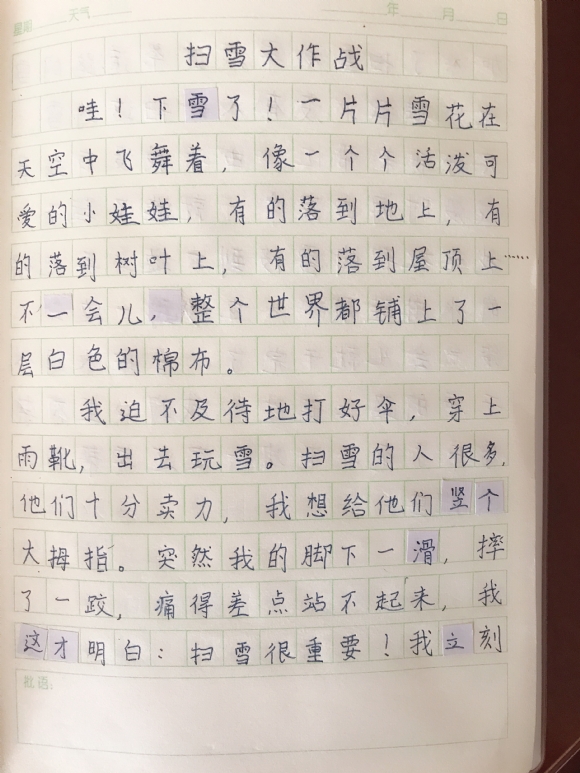 星期 天气 年 月 日
扫雪大作战
哇！下雪了！一片片雪花在
天空中飞舞着，像一个个活泼可
爱的小娃娃，有的落到地上，有
的落到树叶上，有的落到屋顶上……
不一会儿，整个世界都铺上了一
层白色的棉布。
我迫不及待地打好伞，穿上
雨靴，出去玩雪。扫雪的人很多，
他们十分卖力，我想给他们竖个
大拇指。突然我的脚下一滑，摔
了一跤，痛得差点站不起来，我
这才明白：扫雪很重要！我立刻
批语：